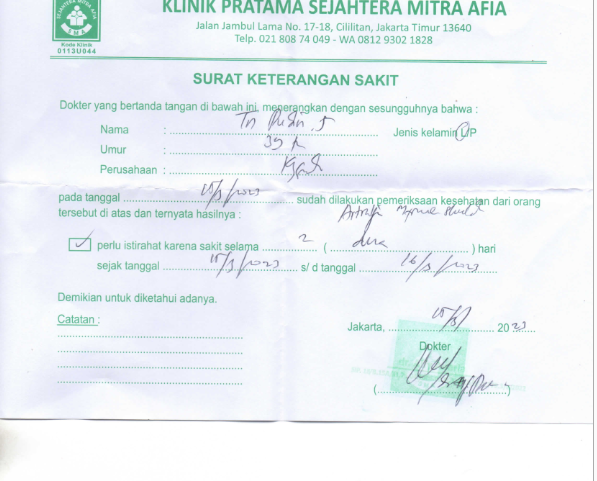 KLINIK PRATAMA SEJAHTERA MITRA AFIA
Jalan Jambul Lama No. 17-18, Cililitan, Jakarta Timur 13640
Telp. 021 808 74 049 - WA 0812 9302 1828
SEJAHTERA MITRA AFIA
Kode Klinik
0113U044
SURAT KETERANGAN SAKIT
Dokter yang bertanda tangan di bawah ini, menerangkan dengan sesungguhnya bahwa :
Nama : Tn Jenis kelamin L/P
Umur : 39
Perusahaan :
pada tanggal 15/3/2023 sudah dilakukan pemeriksaan kesehatan dari orang
tersebut di atas dan ternyata hasilnya :
perlu istirahat karena sakit selama 2 ( dua ) hari
sejak tanggal 15/3/2023 s/d tanggal 16/3/2023
Demikian untuk diketahui adanya.
Catatan :
Jakarta, 15/3/ 2023
Dokter